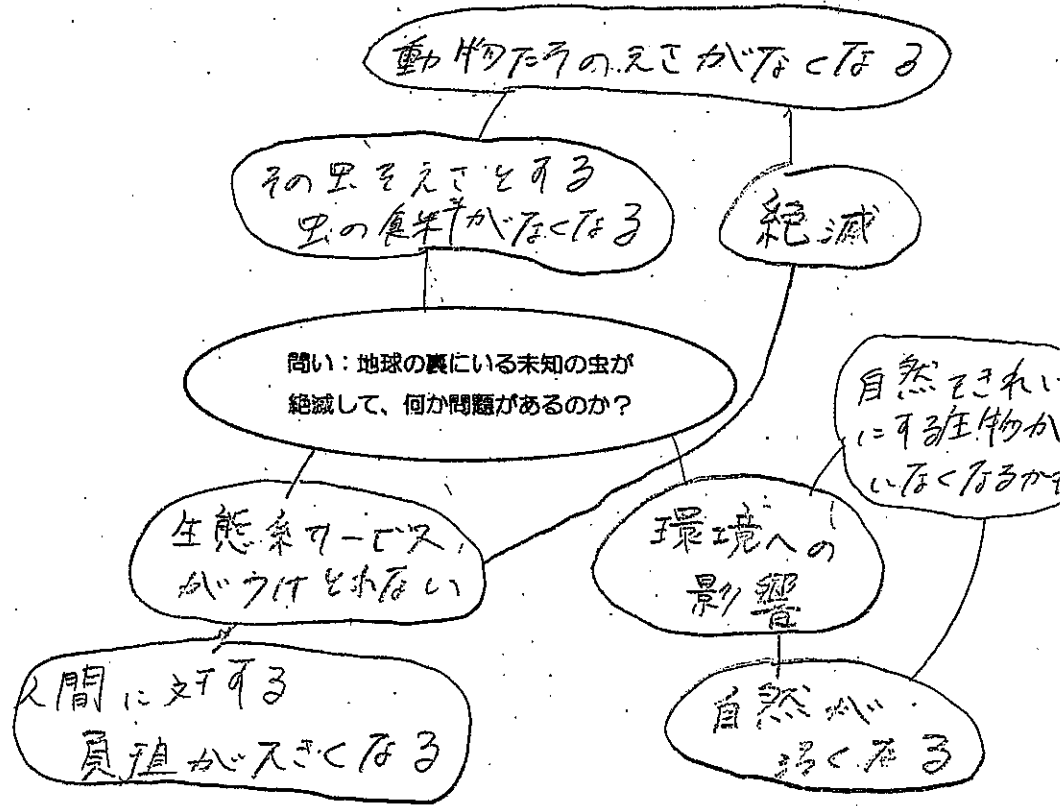 動物たちのえさがなくなる
その虫をえさとする
虫の食料がなくなる
絶滅
問い：地球の裏にいる未知の虫が
絶滅して、何か問題があるのか？
自然をきれい
にする生物が
いなくなるかも
生態系サービス
がうけとれない
環境への
影響
人間に対する
負担が大きくなる
自然が
汚くなる